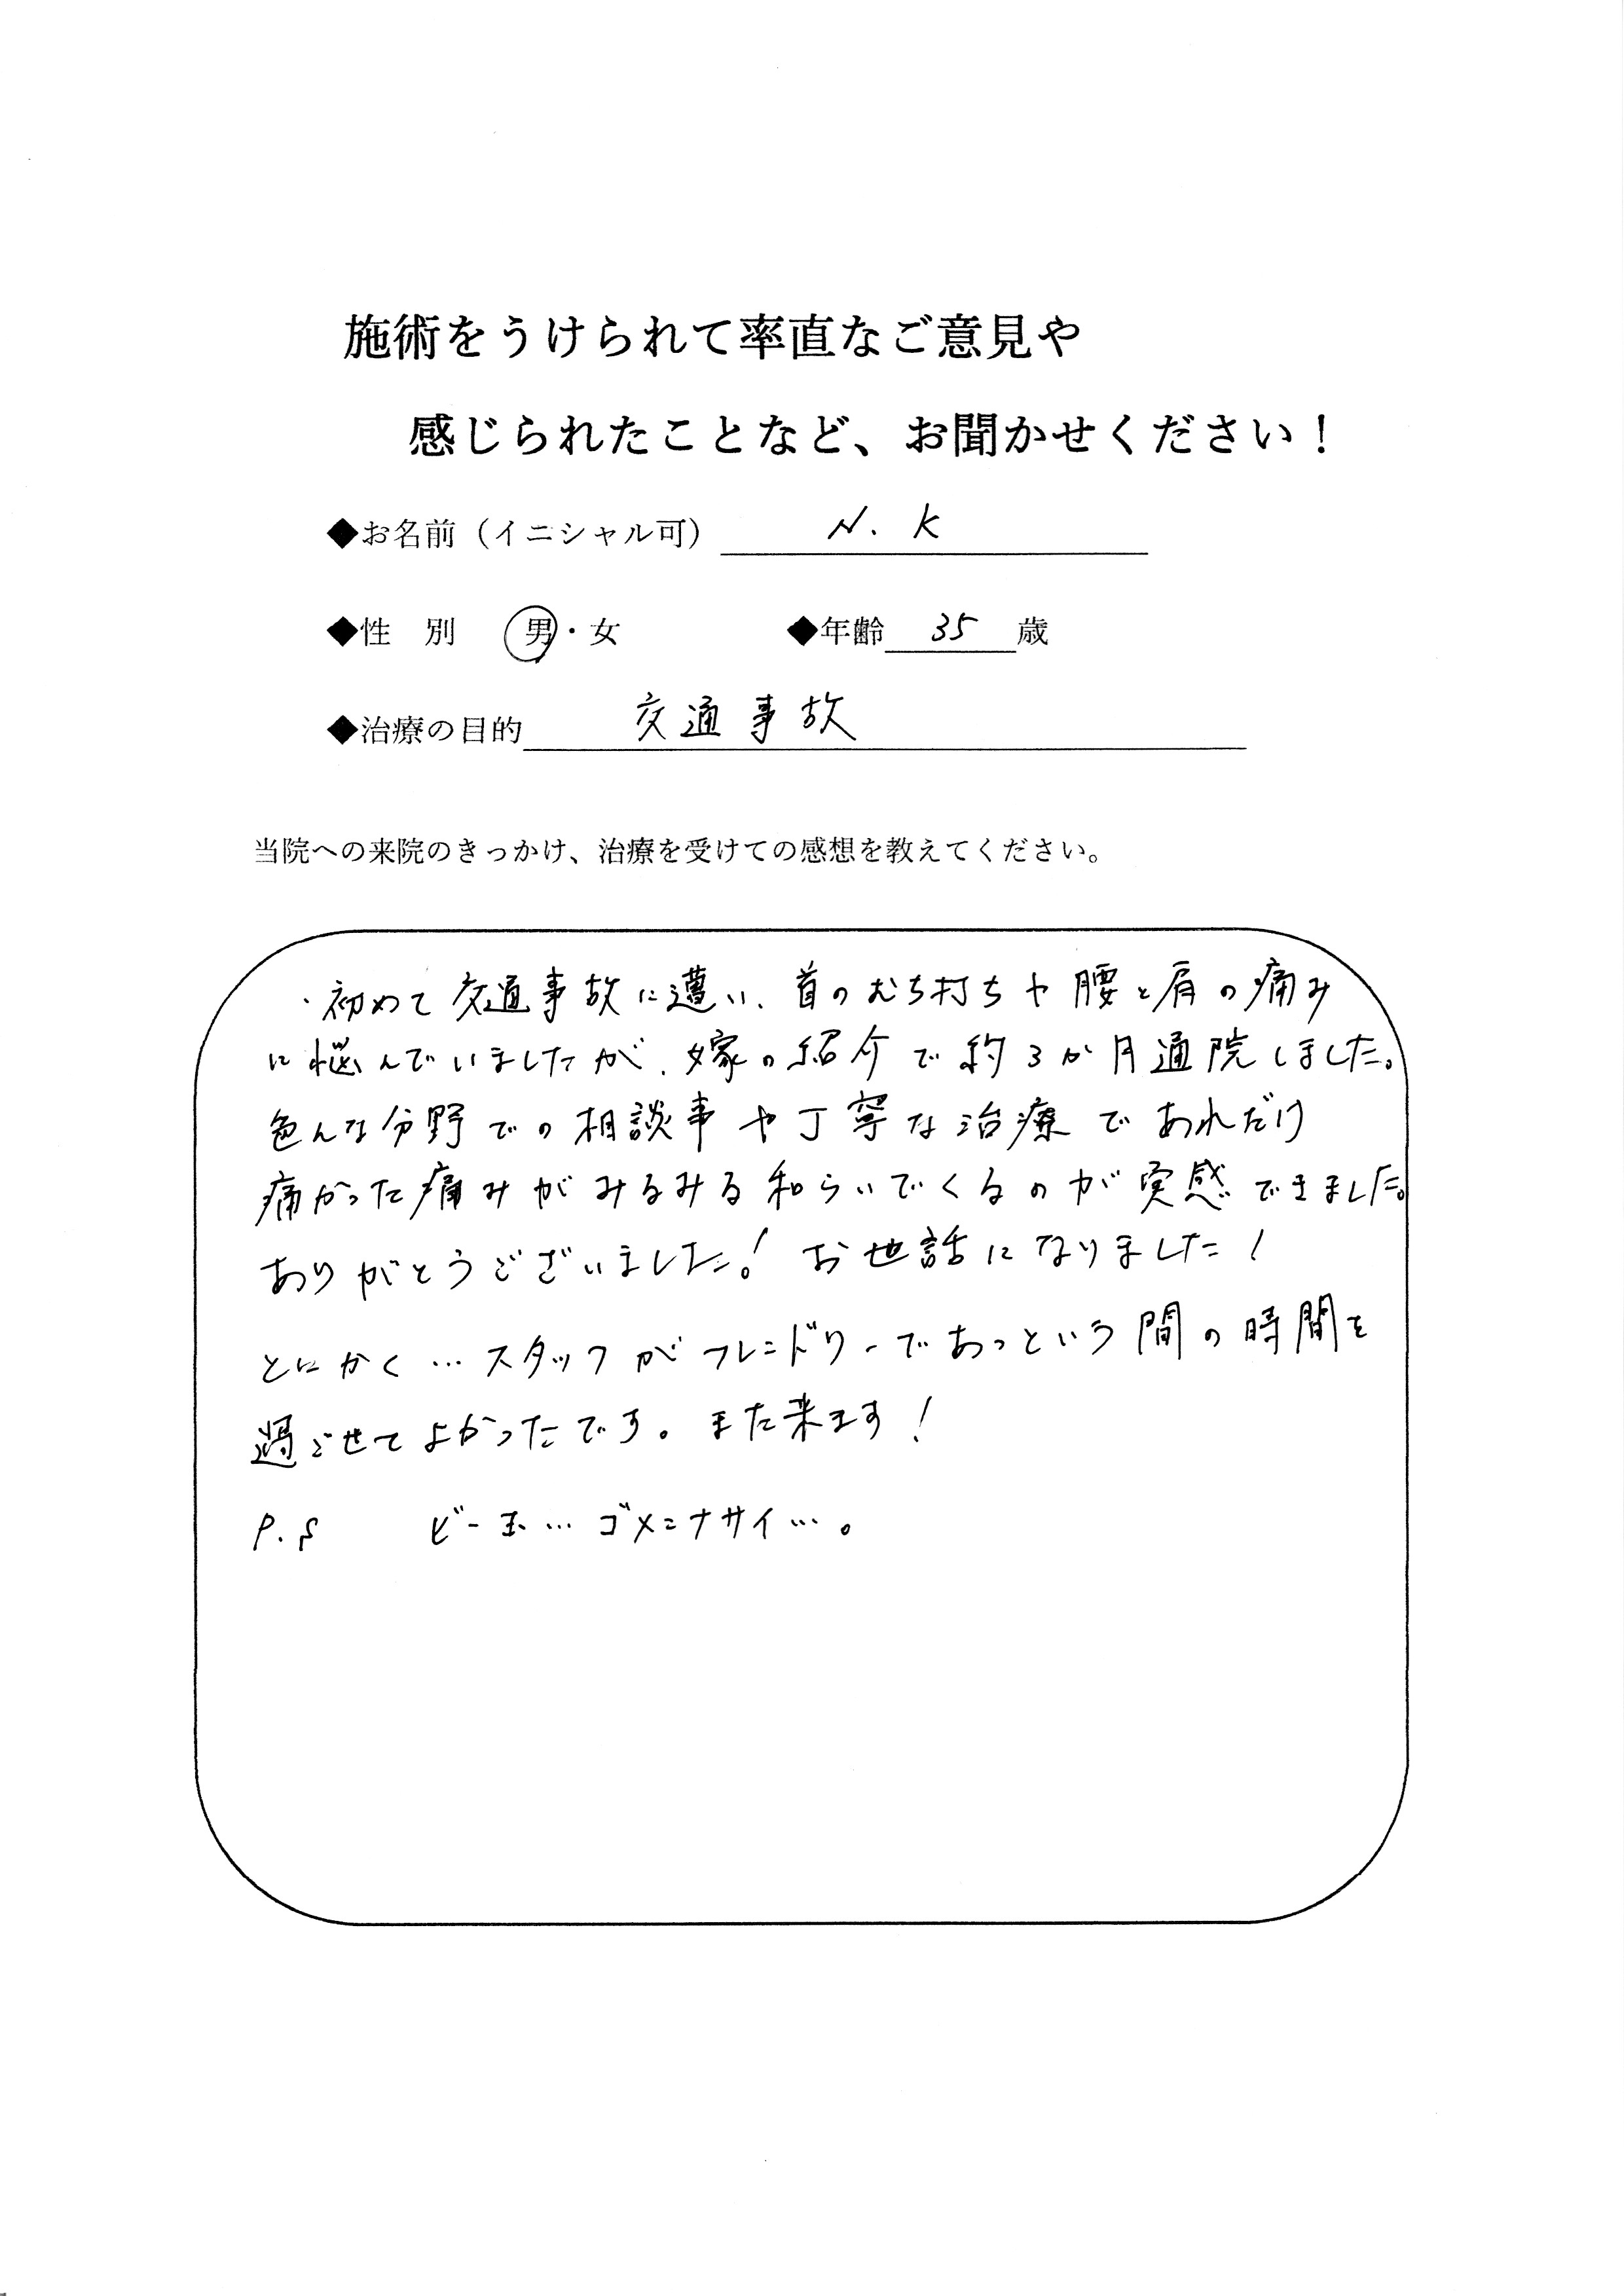 施術をうけられて率直なご意見や
感じられたことなど、お聞かせください！
◆お名前（イニシャル可） N.K
◆性 別 男・女 ◆年齢 35 歳
◆治療の目的 交通事故
当院への来院のきっかけ、治療を受けての感想を教えてください。
・初めて交通事故に遭い、首のむち打ちや腰と肩の痛み
に悩んでいましたが、嫁の紹介で約3か月通院しました。
色んな分野での相談事や丁寧な治療であれだけ
痛かった痛みがみるみる和らいでくるのが実感できました。
ありがとうございました！お世話になりました！
とにかく…スタッフがフレンドリーであっという間の時間を
過ごせてよかったです。また来ます！
P.S ビー玉…ゴメンナサイ…。